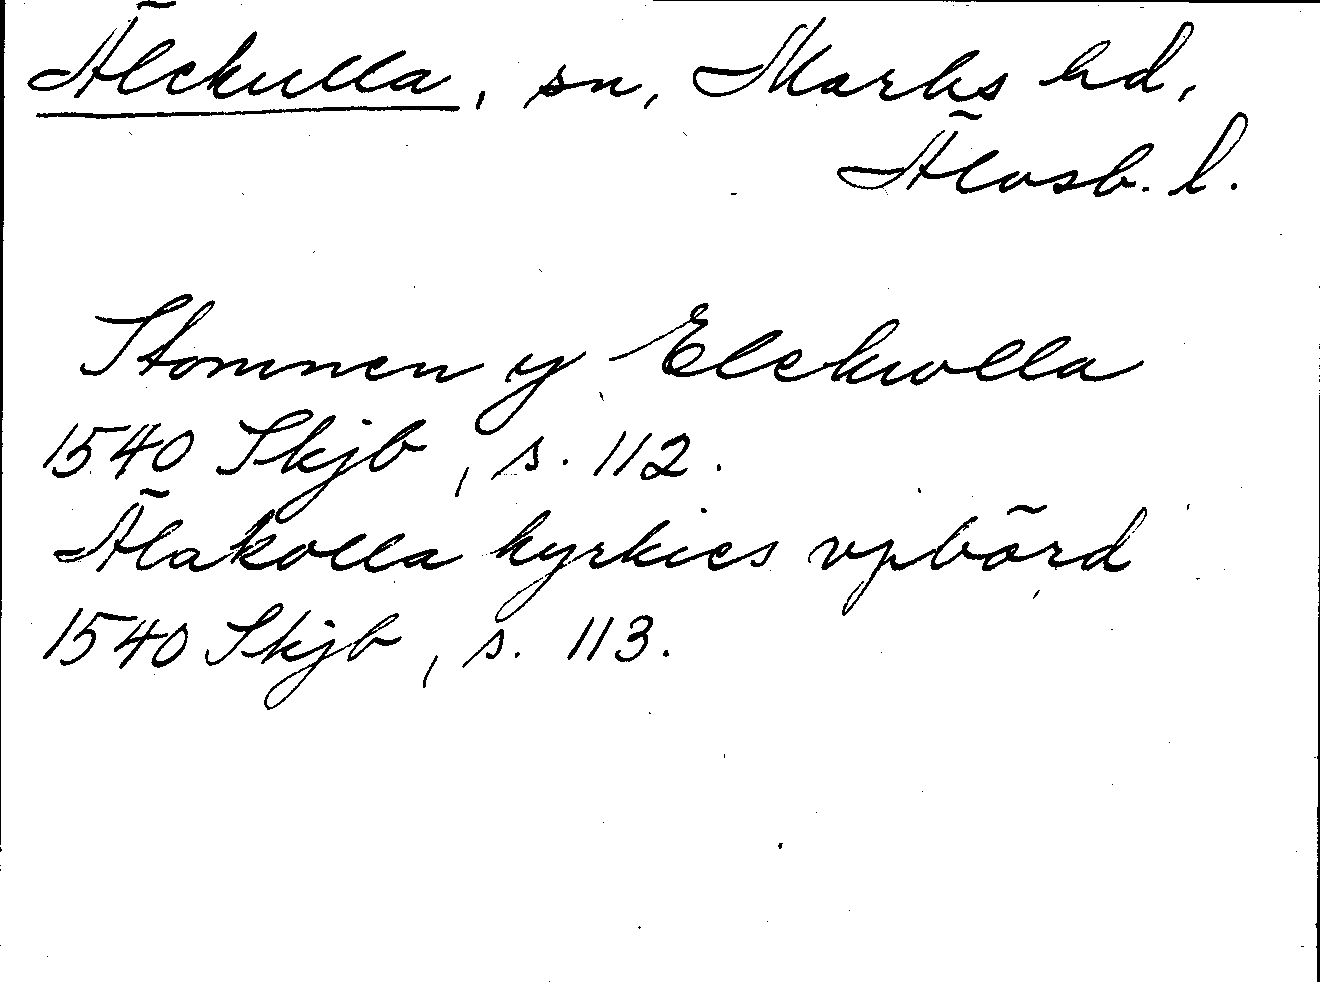 Älekulla, sn, Marks hd,
Älvsb. l.
Stommen y Elekwlla
1540 Skjb, s. 112.
Älakolla kyrkies vpbörd
1540 Skjb, s. 113.